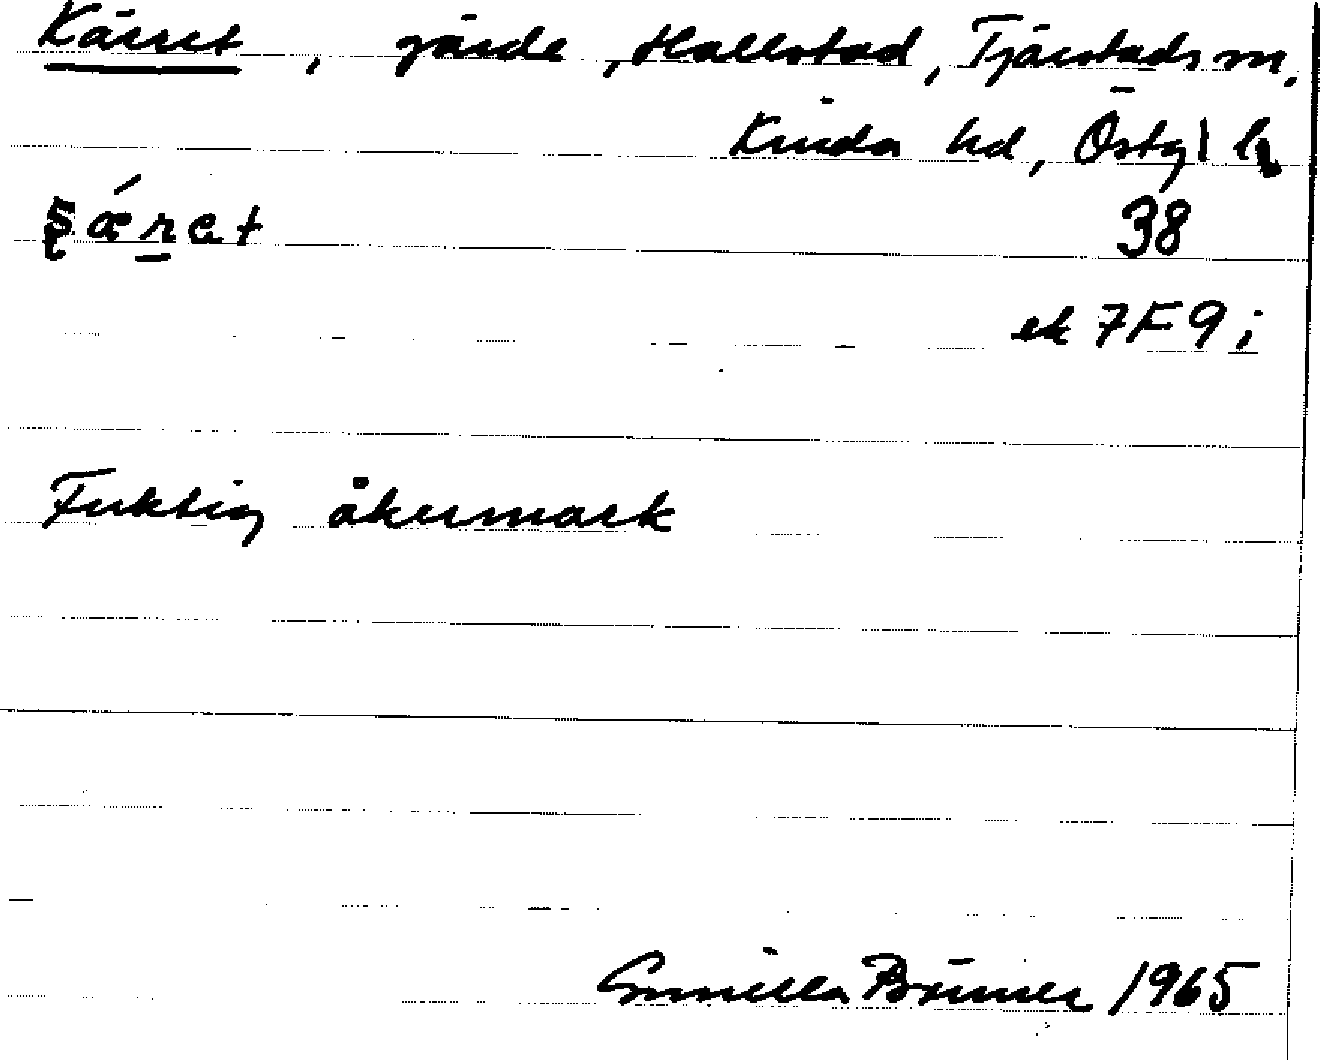 Kärret, gärde, Hallstad, Tjärstads sn.
Kinda hd, Östgl
38
ek 7F9i
Fuktig åkermark
Gunilla Brunner 1965